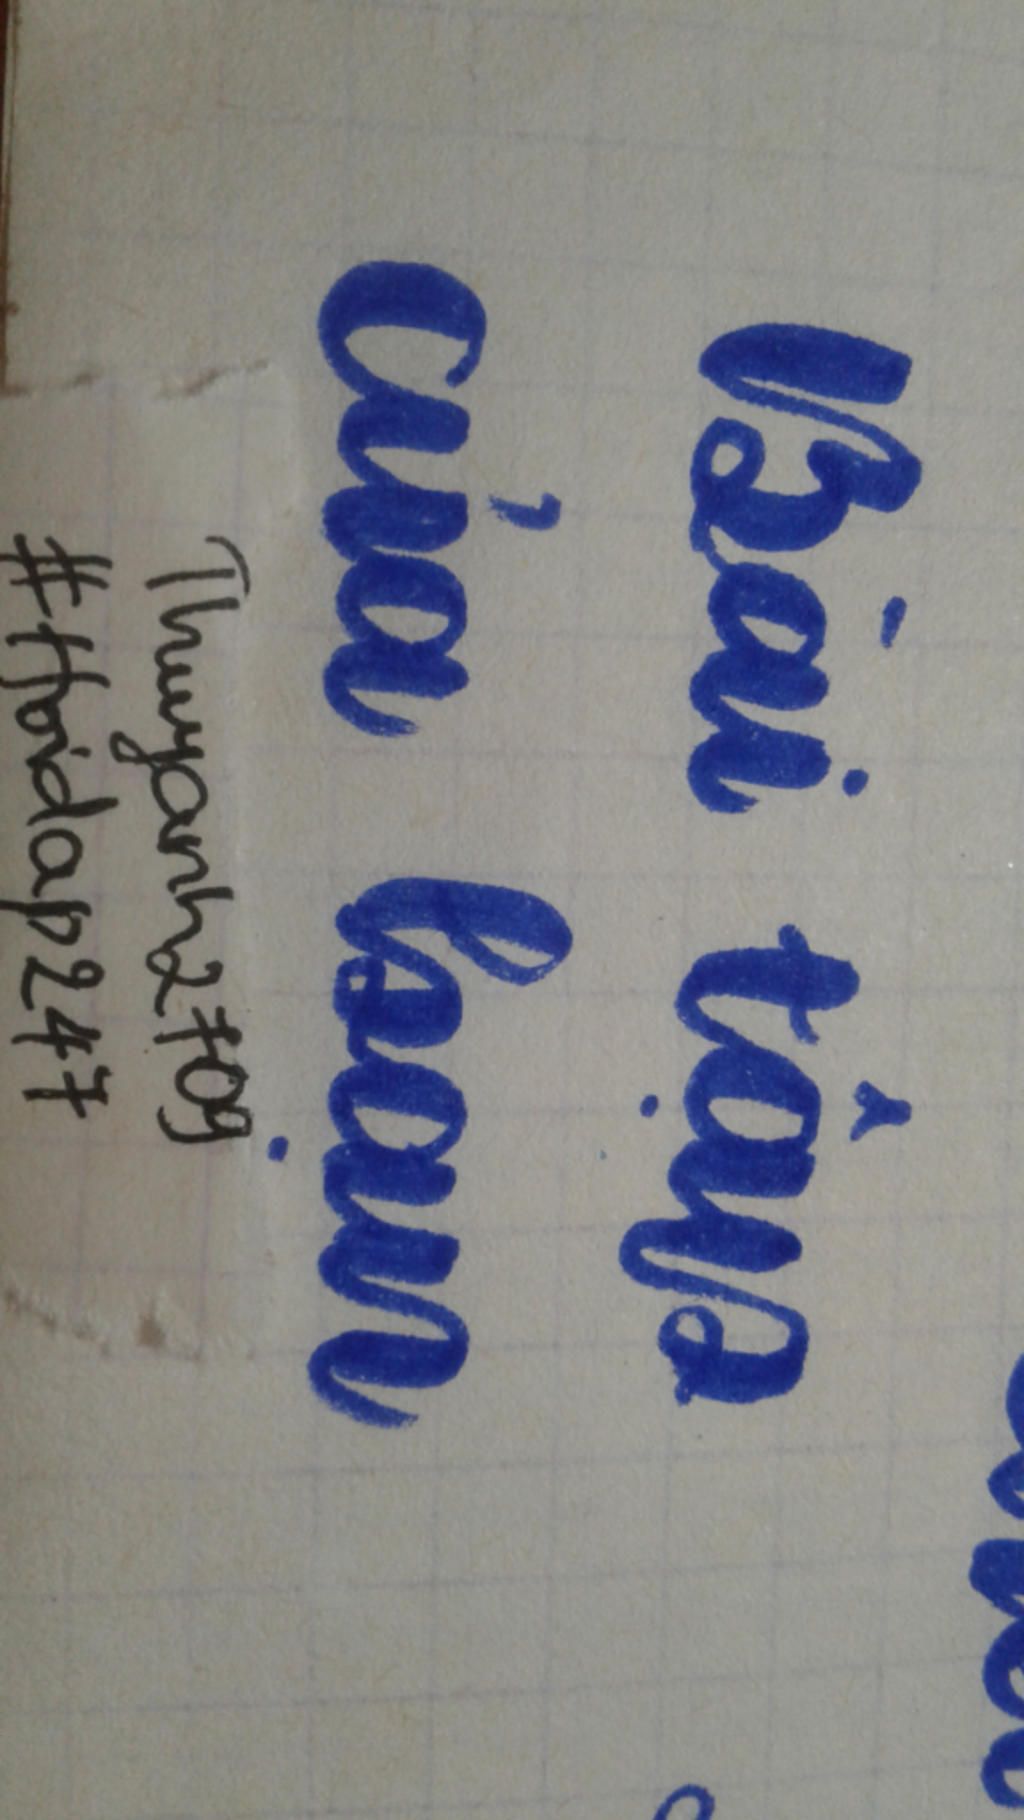 Bài tập
của bạn
Thuyanh2709
#Hoidap247